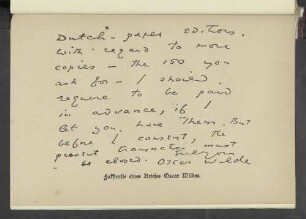 Dutch-paper editions.
With regard to more
copies – the 150 you
ask for – I should
require to be paid
in advance, if I
let you have them. But
before I consent, the
present transaction must
be closed. Oscar Wilde
Facsimile eines Briefes Oscar Wildes.